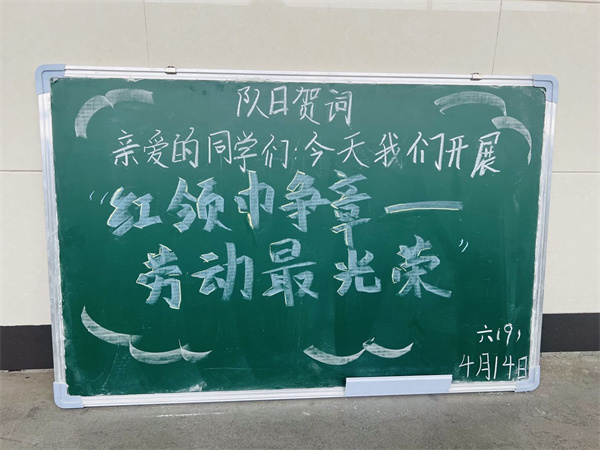 队日贺词
亲爱的同学们:今天我们开展
“红领巾争章—
劳动最光荣”
六(9)
4月14日